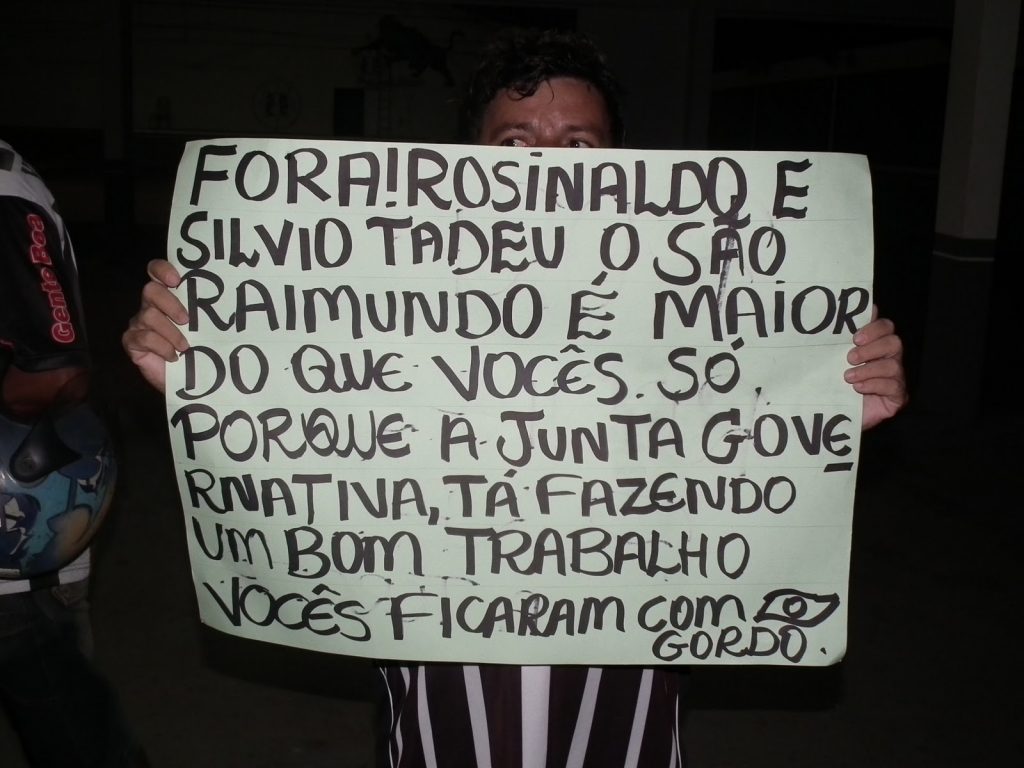 FORA! ROSINALDO E
SILVIO TADEU O SÃO
RAIMUNDO É MAIOR
DO QUE VOCÊS. SÓ.
PORQUE A JUNTA GOVE
RNATIVA, TÁ FAZENDO
UM BOM TRABALHO
VOCÊS FICARAM COM
GORDO.
Gente Boa